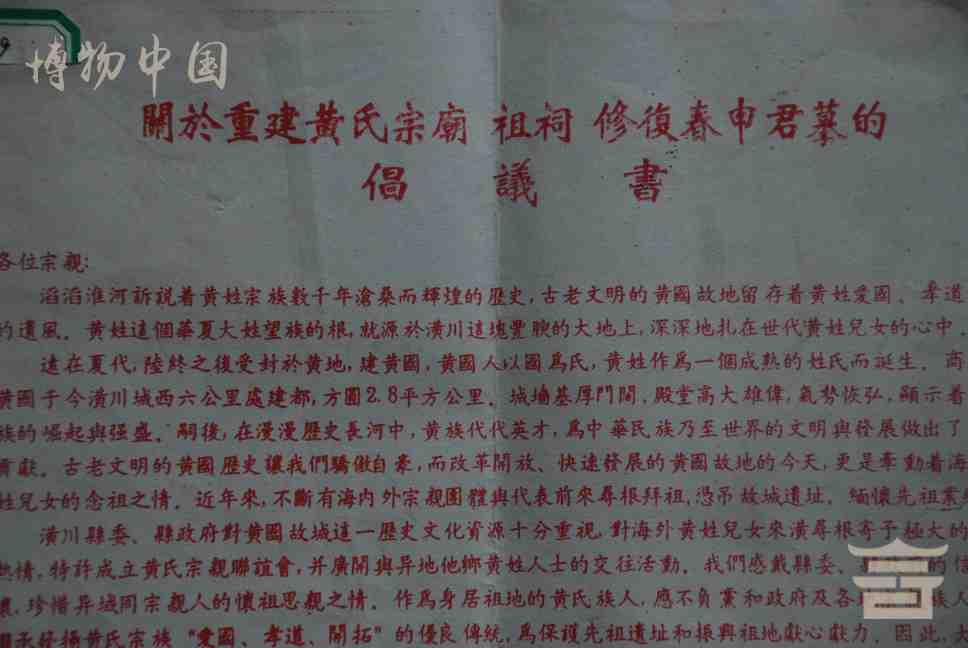 博物中国
關於重建黄氏宗廟 祖祠 修復春申君墓的
倡議書
各位宗親:
滔滔淮河訴説着黄姓宗族數千年滄桑而輝煌的歷史,古老文明的黄國故地留存着黄姓愛國、孝道
的遺風。黄姓這個華夏大姓望族的根,就源於潢川這塊豐腴的大地上,深深地扎在世代黄姓兒女的心中.
遠在夏代,陸終之後受封於黄地,建黄國,黄國人以國爲氏,黄姓作爲一個成熟的姓氏而誕生. 商
黄國于今潢川城西六公里處建都,方圓2.8平方公里. 城墻基厚門闊,殿堂高大雄偉,氣勢恢弘,顯示着
族的崛起與强盛. 嗣後,在漫漫歷史長河中,黄族代代英才,爲中華民族乃至世界的文明與發展做出了
貢獻。古老文明的黄國歷史讓我們驕傲自豪,而改革開放、快速發展的黄國故地的今天,更是牽動着海
姓兒女的念祖之情。近年來,不斷有海内外宗親團體與代表前來尋根拜祖,憑吊故城遺址. 緬懷先祖業
潢川縣委、縣政府對黄國故城這一歷史文化資源十分重視,對海外黄姓兒女來潢尋根寄予極大的
熱情,特許成立黄氏宗親聯誼會,并廣開與异地他鄉黄姓人士的交往活動. 我們感戴縣委、 的信
懷,珍惜异域同宗親人的懷祖思親之情. 作爲身居祖地的黄氏族人,應不負黨和政府及各 族人
承發揚黄氏宗族“愛國、孝道、開拓”的優良傳統,爲保護先祖遺址和振興祖地獻心獻力. 因此,